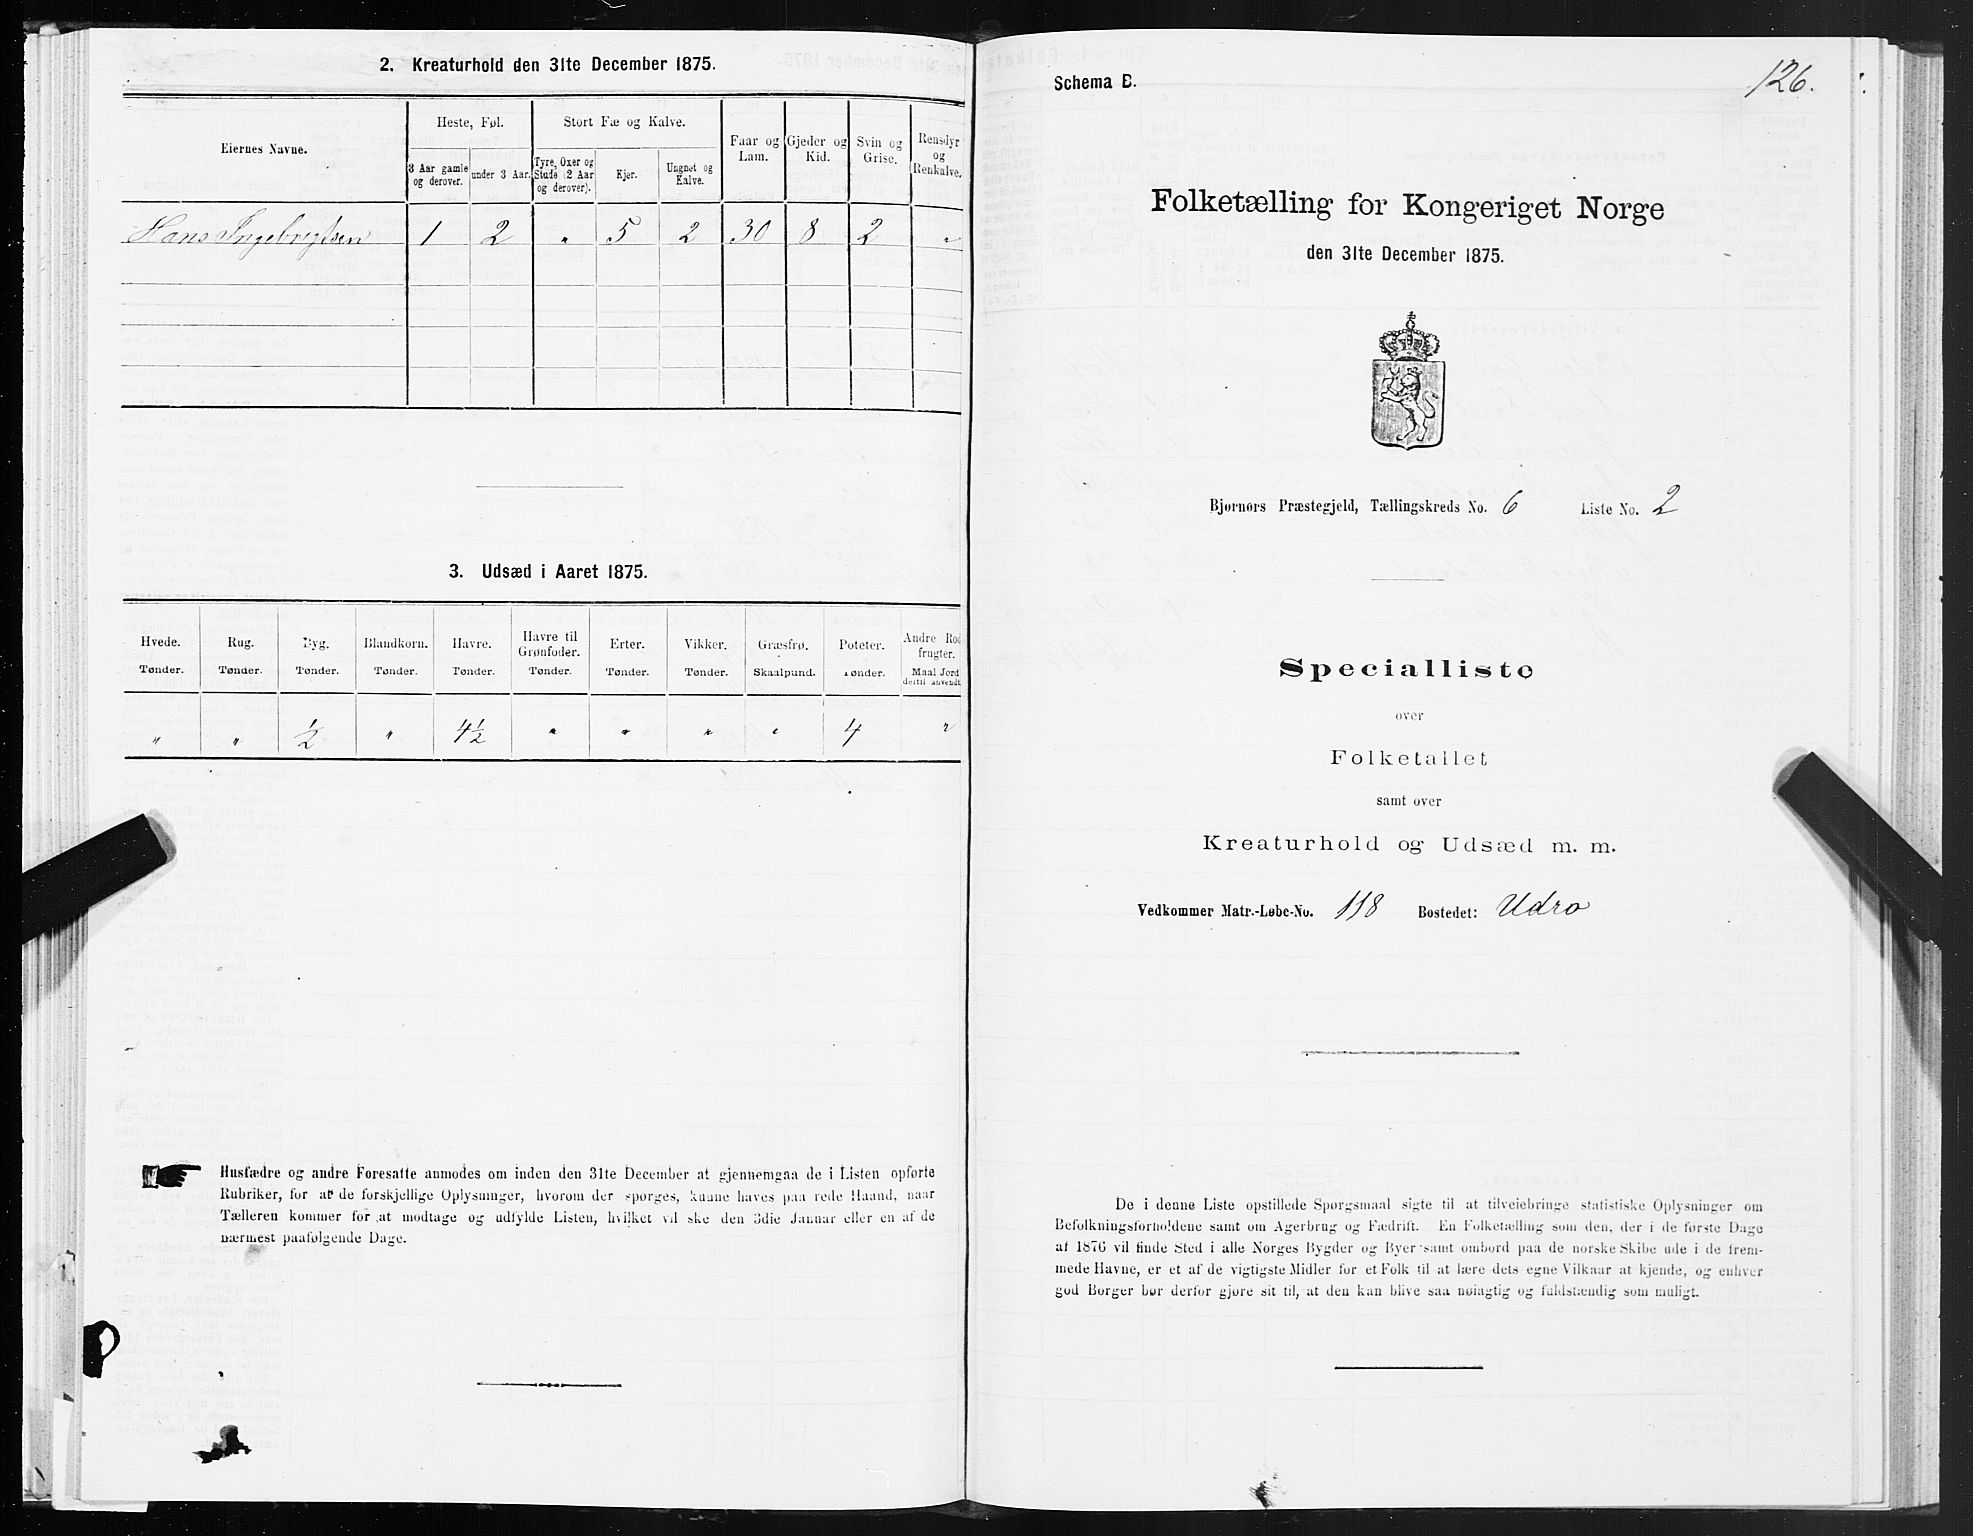 2. Kreaturhold den 31te December 1875.
Eiernes Navne.
Heste, Føl.
Stort Fæ og Kalve.
Faar og Lam.
Gjeder og Kid.
Svin og Grise.
Rensdyr og Renkalve.
3 Aar gamle og derover.
under 3 Aar.
Tyre, Oxer og Stude (2 Aar og derover).
Kjer.
Ungnøt og Kalve.
Hans Ingebrigtsen 1 2 " 5 2 30 8 2 "
3. Udsæd i Aaret 1875.
Hvede. Rug. Byg. Blandkorn. Havre. Havre til Grønfoder. Erter. Vikker. Græsfrø. Poteter. Andre Rodfrugter.
Tønder. Tønder. Tønder. Tønder. Tønder. Tønder. Tønder. Tønder. Skaalpund. Tønder. Maal Jord dertil anvendt
" " ½ " 4½ " " " " 4 "
Husfædre og andre Foresatte anmodes om inden den 31te December at gjennemgaa de i Listen opførte
Rubriker, for at de forskjellige Oplysninger, hvorom der spørges, kunne haves paa rede Haand, naar
Tælleren kommer for at modtage og udfylde Listen, hvilket vil ske den 3die Januar eller en af de
nærmest paafølgende Dage.
126.
Schema B.
Folketælling for Kongeriget Norge
den 31te December 1875.
Bjørnørs Præstegjeld, Tællingskreds No. 6 Liste No. 2
Specialliste
over
Folketallet
samt over
Kreaturhold og Udsæd m. m.
Vedkommer Matr.-Løbe-No. 118 Bostedet: Udro
De i denne Liste opstillede Spørgsmaal sigte til at tilveiebringe statistiske Oplysninger om
Befolkningsforholdene samt om Agerbrug og Fædrift. En Folketælling som den, der i de første Dage
af 1876 vil finde Sted i alle Norges Bygder og Byer samt ombord paa de norske Skibe ude i de frem-
mede Havne, er et af de vigtigste Midler for et Folk til at lære dets egne Vilkaar at kjende, og enhver
god Borger bør derfor gjøre sit til, at den kan blive saa nøiagtig og fuldstændig som muligt.